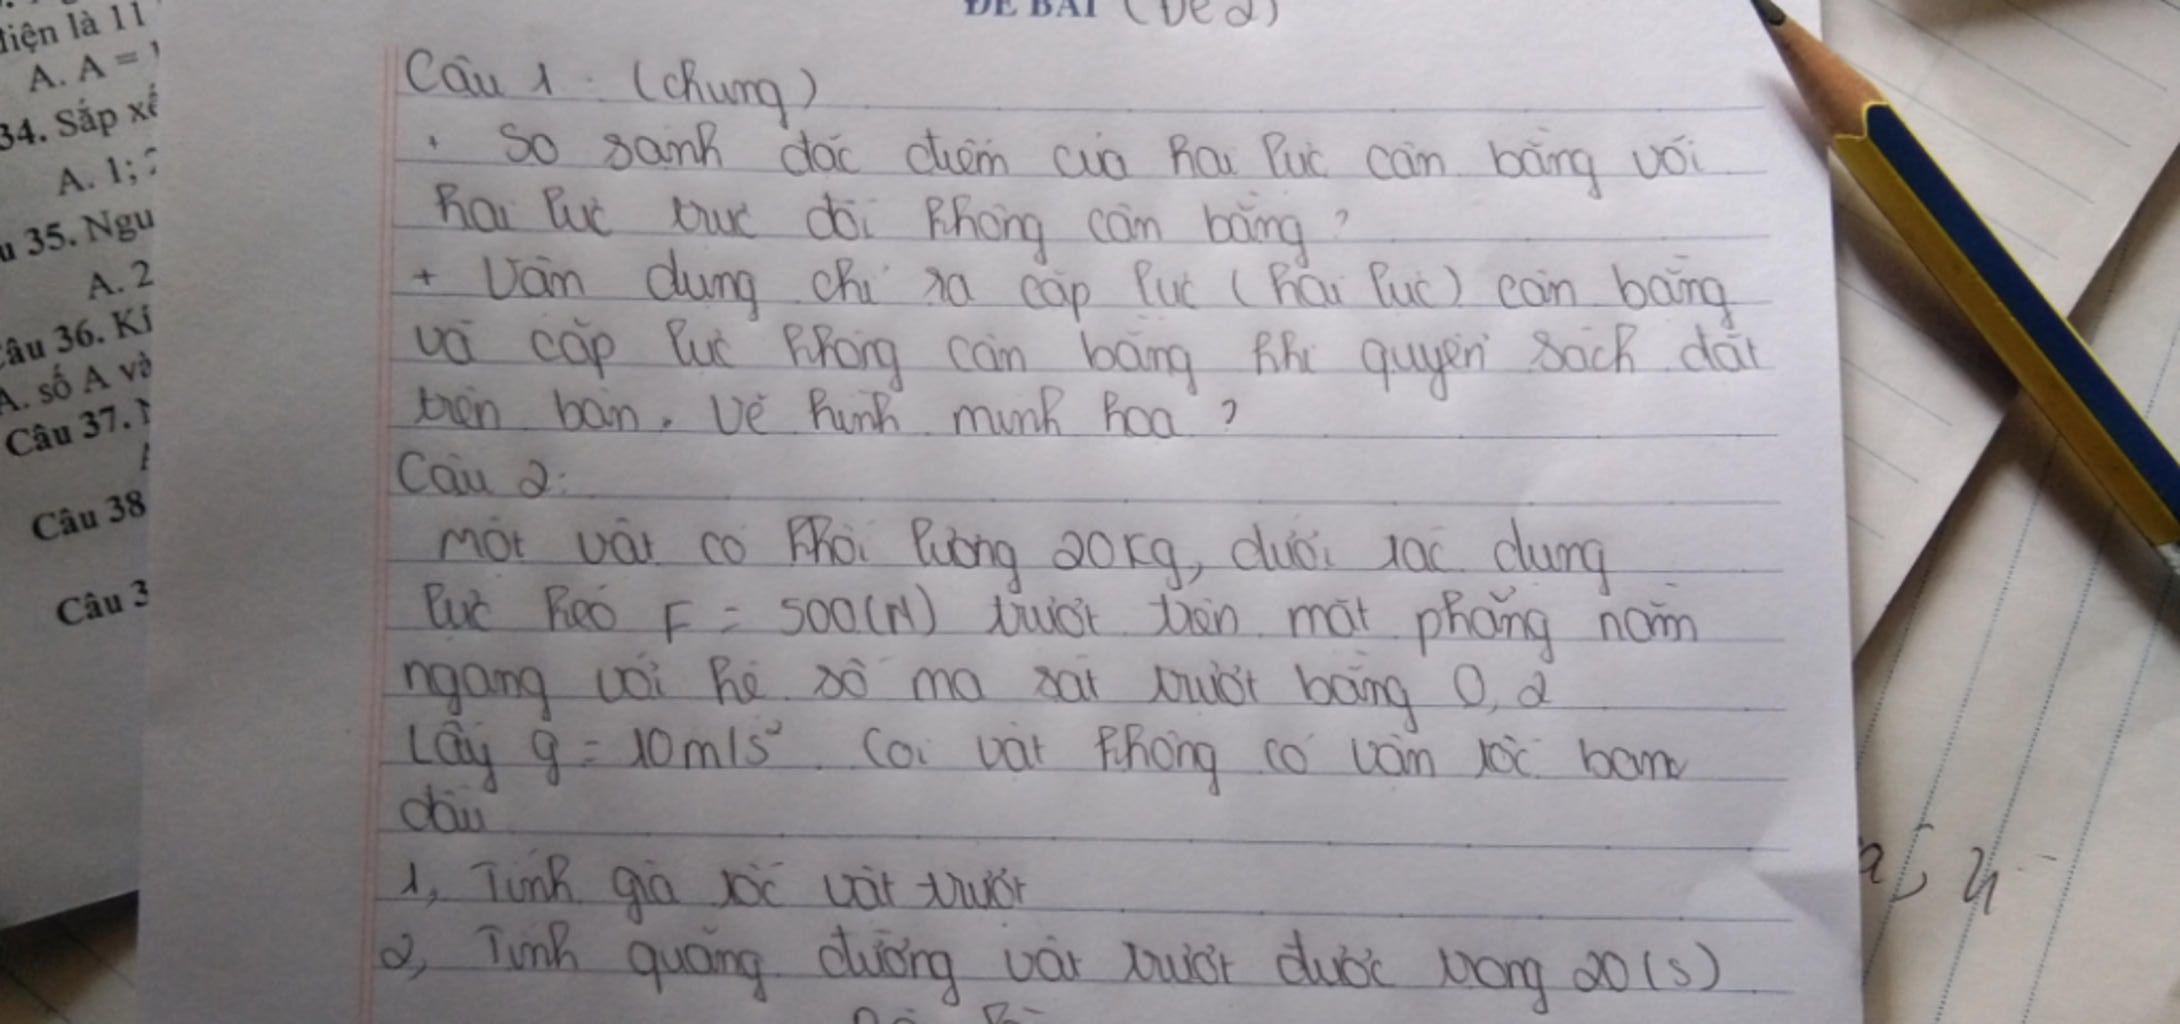 ĐỀ BÀI (Đề 2)
Câu 1: (chung)
+ So sánh đặc điểm của hai lực cân bằng với
hai lực trực đối không cân bằng?
+ Vận dụng chỉ ra cặp lực (hai lực) cân bằng
và cặp lực không cân bằng khi quyển sách đặt
trên bàn. Vẽ hình minh hoạ?
Câu 2:
Một vật có khối lượng 20kg, dưới tác dụng
lực kéo F = 500(N) trượt trên mặt phẳng nằm
ngang với hệ số ma sát trượt bằng 0,2
Lấy g = 10m/s² Coi vật không có vận tốc ban
đầu
1, Tính gia tốc vật trượt
2, Tính quãng đường vật trượt được trong 20(s)
diện là 11
A. A =
34. Sắp xế
A. 1;
u 35. Ngu
A. 2
Câu 36. Kí
A. số A và
Câu 37.
Câu 38
Câu 3